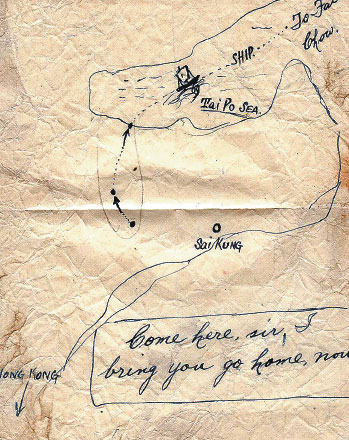 To Fat
Chow.
SHIP.
Tai Po SEA.
Sai KUNG
HONG KONG
Come here, sir, I
bring you go home, now